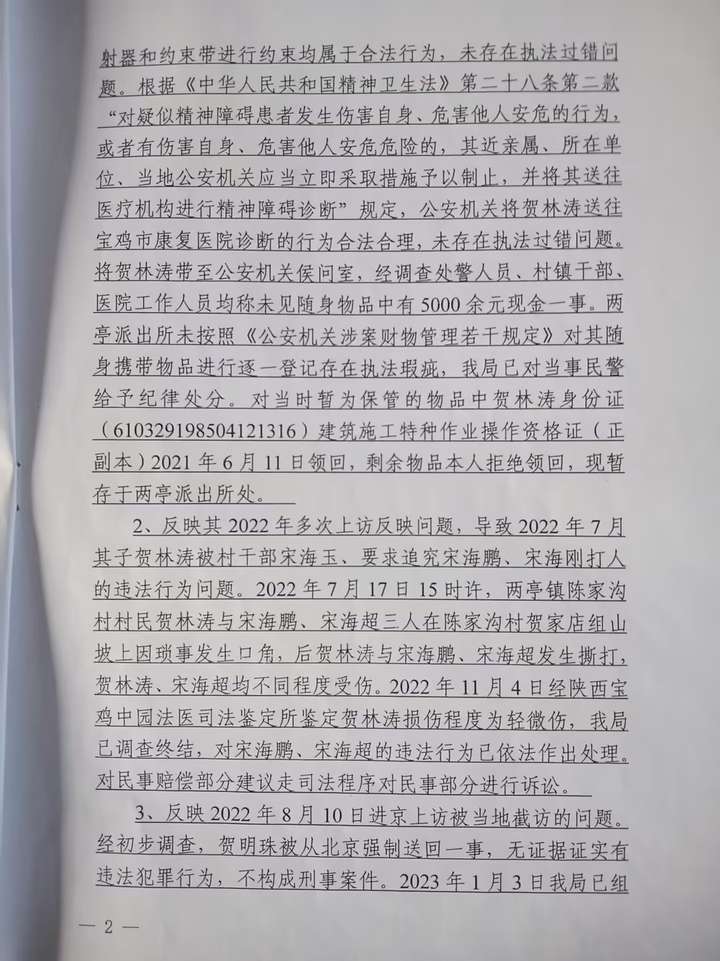 射器和约束带进行约束均属于合法行为，未存在执法过错问
题。根据《中华人民共和国精神卫生法》第二十八条第二款
“对疑似精神障碍患者发生伤害自身、危害他人安危的行为，
或者有伤害自身、危害他人安危危险的，其近亲属、所在单
位、当地公安机关应当立即采取措施予以制止，并将其送往
医疗机构进行精神障碍诊断”规定，公安机关将贺林涛送往
宝鸡市康复医院诊断的行为合法合理，未存在执法过错问题。
将贺林涛带至公安机关侯问室，经调查处警人员、村镇干部、
医院工作人员均称未见随身物品中有5000余元现金一事。两
亭派出所未按照《公安机关涉案财物管理若干规定》对其随
身携带物品进行逐一登记存在执法瑕疵，我局已对当事民警
给予纪律处分。对当时暂为保管的物品中贺林涛身份证
（610329198504121316）建筑施工特种作业操作资格证（正
副本）2021年6月11日领回，剩余物品本人拒绝领回，现暂
存于两亭派出所处。
2、反映其2022年多次上访反映问题，导致2022年7月
其子贺林涛被村干部宋海玉、要求追究宋海鹏、宋海刚打人
的违法行为问题。2022年7月17日15时许，两亭镇陈家沟
村村民贺林涛与宋海鹏、宋海超三人在陈家沟村贺家店组山
坡上因琐事发生口角，后贺林涛与宋海鹏、宋海超发生撕打，
贺林涛、宋海超均不同程度受伤。2022年11月4日经陕西宝
鸡中园法医司法鉴定所鉴定贺林涛损伤程度为轻微伤，我局
已调查终结，对宋海鹏、宋海超的违法行为已依法作出处理。
对民事赔偿部分建议走司法程序对民事部分进行诉讼。
3、反映2022年8月10日进京上访被当地截访的问题。
经初步调查，贺明珠被从北京强制送回一事，无证据证实有
违法犯罪行为，不构成刑事案件。2023年1月3日我局已组
— 2 —